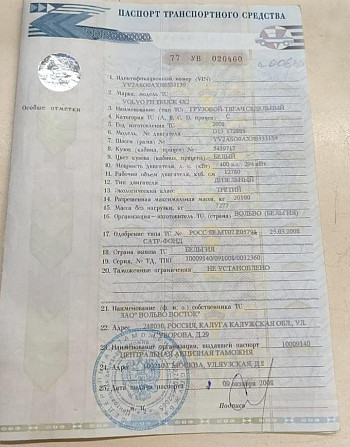 ПАСПОРТ ТРАНСПОРТНОГО СРЕДСТВА
77 УВ 020460
Особые отметки
1. Идентификационный номер (VIN)
2. Марка, модель ТС
VOLVO FH TRUCK 4X2
3. Наименование (тип ТС) ГРУЗОВОЙ ТЯГАЧ СЕДЕЛЬНЫЙ
4. Категория ТС (A, B, C, D, прицеп) C
5. Год изготовления ТС
6. Модель, № двигателя D13
7. Шасси (рама) №
8. Кузов (кабина, прицеп) №
9. Цвет кузова (кабины, прицепа) БЕЛЫЙ
10. Мощность двигателя, л. с. (кВт) 400 л.с. 294 кВт
11. Рабочий объем двигателя, куб. см 12780
12. Тип двигателя ДИЗЕЛЬНЫЙ
13. Экологический класс ТРЕТИЙ
14. Разрешенная максимальная масса, кг
15. Масса без нагрузки, кг
16. Организация—изготовитель ТС (страна) ВОЛЬВО (БЕЛЬГИЯ)
17. Одобрение типа ТС № РОСС
САТР-ФОНД
18. Страна вывоза ТС БЕЛЬГИЯ
19. Серия, № ТД, ТПО 10009140/091008/0012360
20. Таможенные ограничения НЕ УСТАНОВЛЕНО
21. Наименование (ф. и. о.) собственника ТС
ЗАО" ВОЛЬВО ВОСТОК"
22. Адрес 248010, РОССИЯ, КАЛУГА КАЛУЖСКАЯ ОБЛ., УЛ.
Д.29
23. Наименование организации, выдавшей паспорт 10009140
ЦЕНТРАЛЬНАЯ АКЦИЗНАЯ ТАМОЖНЯ
24. Адрес
25. Дата выдачи паспорта 09 октября 2008
Подпись